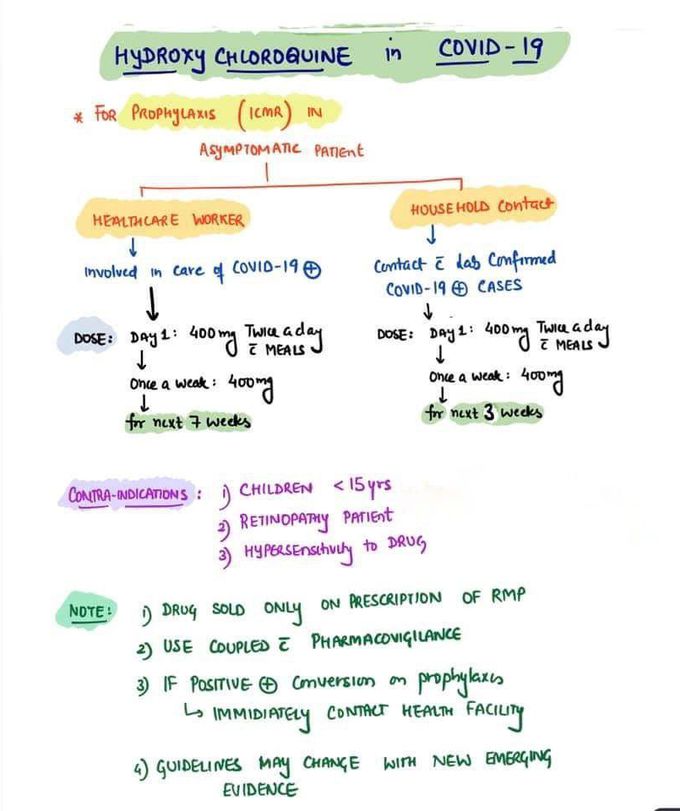 HYDROXY CHLOROQUINE in COVID-19
* FOR PROPHYLAXIS (ICMR) IN
ASYMPTOMATIC PATIENT
HEALTHCARE WORKER
Involved in care of COVID-19 ⊕
DOSE: DAY 1: 400 mg Twice a day
c̄ MEALS
Once a weak: 400mg
for next 7 weeks
HOUSEHOLD Contact
Contact c̄ Lab Confirmed
COVID-19 ⊕ CASES
DOSE: DAY 1: 400 mg Twice a day
c̄ MEALS
Once a weak: 400mg
for next 3 weeks
CONTRA-INDICATIONS: 1) CHILDREN <15yrs
2) RETINOPATHY PATIENT
3) HYPERSensitivity to DRUG
NOTE: 1) DRUG SOLD ONLY ON PRESCRIPTION OF RMP
2) USE COUPLED c̄ PHARMACOVIGILANCE
3) IF POSITIVE ⊕ Conversion on prophylaxis
↳ IMMIDIATELY CONTACT HEALTH FACILITY
4) GUIDELINES MAY CHANGE WITH NEW EMERGING
EVIDENCE